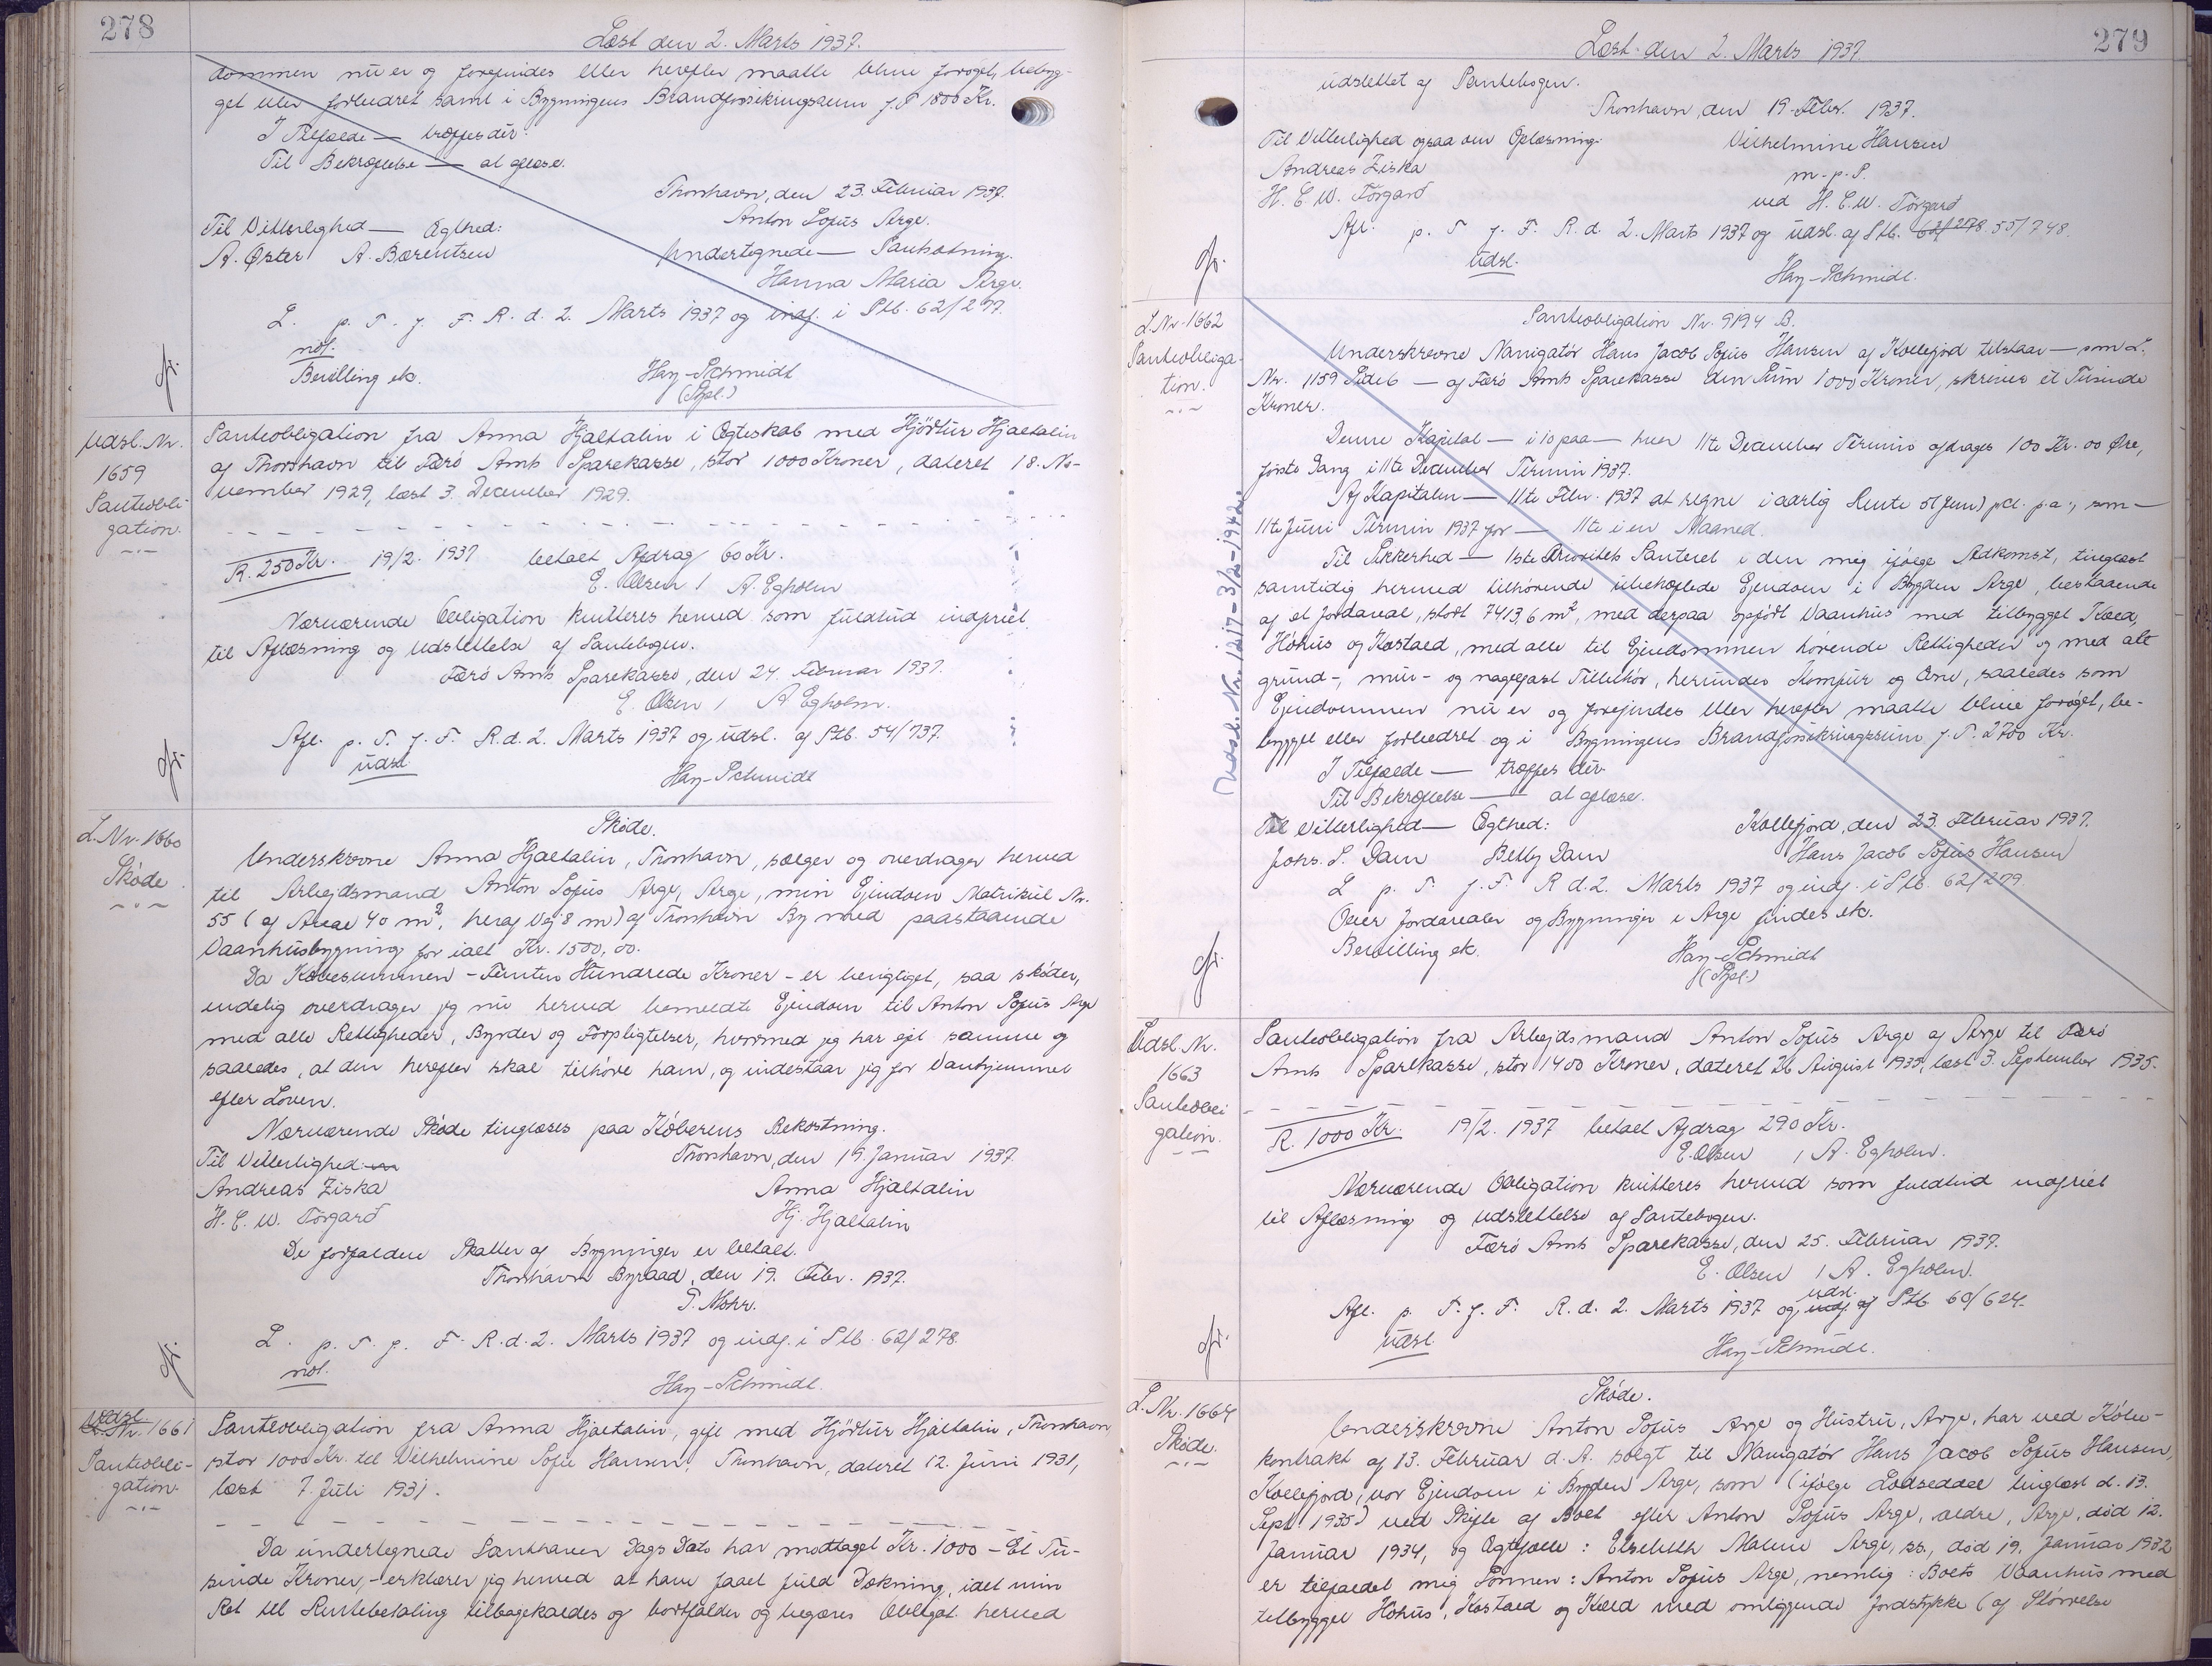 278
Læst den 2. Marts 1937.
dommen nu er og forefindes eller herefter maatte blive forøget, bebyg-
get eller forbedret samt i Bygningens Brandforsikringssum f. T. 1800 Kr.
I Tilfælde — træffes dér.
Til Bekræftelse — at aflæse.
Thorshavn, den 23. Februar 1937.
Anton Sofus Arge.
Til Vitterlighed — Ægthed:
Undertegnede — Panhætning.
A. Øster A. Bærentsen
Hanna Maria Arge.
L. p. T. f. F. R. d. 2. Marts 1937 og indf. i Ptb. 62/277.
not.
Bevilling ek.
Hay-Schmidt
(Fyl.)
Udsl. Nr.
1659
Panteobli-
gation.
Panteobligation fra Anna Hjaltalin i Ægteskab med Hjörtur Hjaltalin
af Thorshavn til Færø Amts Sparekasse, stor 1000 Kroner, dateret 18. No-
vember 1929, læst 3. December 1929.
R. 250 Kr. 19/2. 1937 betalt Afdrag 60 Kr.
E. Olsen / A. Egholm
Nærværende Obligation kvitteres herved som fuldtud indfriet
til Aflæsning og Udslettelse af Pantebogen.
Færø Amts Sparekasse, den 24. Februar 1937.
E. Olsen / A Egholm.
Afl. p. T. f. F. R. d. 2. Marts 1937 og udsl. af Ptb. 54/737.
udsl.
Hay-Schmidt
L. Nr. 1660
Skøde.
Skøde.
Underskrevne Anna Hjaltalin, Thorshavn, sælger og overdrager herved
til Arbejdsmand Anton Sofus Arge, Arge, min Ejendom Matrikul Nr.
55 (af Areal 40 m², heraf Vej 8 m) af Thorshavn By med paastaaende
Vaanhusbygning for ialt Kr. 1500,00.
Da Købesummen - Femten Hundrede Kroner - er berigtiget, saa skøder,
endelig overdrager jeg nu herved bemeldte Ejendom til Anton Sofus Arge
med alle Rettigheder, Byrder og Forpligtelser, hvormed jeg har ejet samme og
saaledes, at den herefter skal tilhøre ham, og indestaar jeg for Vanhjemmel
efter Loven.
Nærværende Skøde tinglæses paa Køberens Bekostning.
Til Vitterlighed:
Thorshavn, den 19. Januar 1937.
Andreas Ziska
Anna Hjaltalin
H. E. W. Tórgarð
Hj. Hjaltalin
De forfaldne Skatter af Bygninger er betalt.
Thorshavn Byraad, den 19. Febr. 1937.
T. Mohr.
L. p. T. f. F. R. d. 2. Marts 1937 og indf. i Ptb. 62/278.
not.
Hay-Schmidt.
Udsl.
Nr. 1661
Panteobli-
gation.
Panteobligation fra Anna Hjaltalin, gift med Hjörtur Hjaltalin, Thorshavn,
stor 1000 Kr. til Vilhelmine Sofie Hansen, Thorshavn, dateret 12. Juni 1931,
læst 7. Juli 1931.
Da undertegnede Panthaver Dags Dato har modtaget Kr. 1000 - Et Tu-
sinde Kroner, - erklærer jeg herved at have faaet fuld Dækning, idet min
Ret til Rentebetaling tilbagekaldes og bortfalder og begæres Obligat. herved
279
Læst den 2. Marts 1937.
udslettet af Pantebogen.
Thorshavn, den 19. Febr. 1937.
Til Vitterlighed ogsaa om Oplæsning:
Vilhelmine Hansen
Andreas Ziska
m. p. P.
H. E. W. Tórgarð
ved H. E. W. Tórgarð
Afl. p. T. f. F. R. d. 2. Marts 1937 og udsl. af Ptb. 62/278. 55/748.
udsl.
Hay-Schmidt.
L. Nr. 1662
Panteobliga-
tion.
Udsl. Nr. 1217 - 3/2-1942.
Panteobligation Nr. 9194 B.
Underskrevne Navigatør Hans Jacob Sofus Hansen af Kollefjord tilstaar — som L.
Nr. 1159 Side 6 — af Færø Amts Sparekasse den Sum 1000 Kroner, skriver ét Tusinde
Kroner.
Denne Kapital — i 10 paa — hver 11te December Termin afdrages 100 Kr. 00 Øre,
første Gang i 11te December Termin 1937.
Af Kapitalen — 11te Febr. 1937 at regne i aarlig Rente 5 (fem) pCt. p.a., som —
11te Juni Termin 1937 for — 11te i en Maaned.
Til Sikkerhed — 1ste Prioritets Panteret i den mig ifølge Adkomst, tinglæst
samtidig hermed tilhørende ubehæftede Ejendom i Bygden Arge, bestaaende
af et Jordareal, stort 7413,6 m², med derpaa opført Vaanhus med tilbygget Kæld,
Høhus og Kostald, med alle til Ejendommen hørende Rettigheder og med alt
grund-, mur- og nagelfast Tilbehør, herunder Komfur og Ovne, saaledes som
Ejendommen nu er og forefindes eller herefter maatte blive forøget, be-
bygget eller forbedret og i Bygningens Brandforsikringssum f. T. 2700 Kr.
I Tilfælde — træffes dér.
Til Bekræftelse — at aflæse.
Til Vitterlighed — Ægthed:
Kollefjord, den 23. Februar 1937.
Johs. P. Dam Betty Dam
Hans Jacob Sofus Hansen
L p. T. f. F. R d. 2. Marts 1937 og indf. i Ptb. 62/279.
Over Jordarealer og Bygninger i Arge findes ek.
Bevilling ek.
Hay-Schmidt
(Fyl.)
Udsl. Nr.
1663
Panteobli-
gation.
Panteobligation fra Arbejdsmand Anton Sofus Arge af Arge til Færø
Amts Sparekasse, stor 1400 Kroner, dateret 26 August 1935, læst 3. September 1935.
R. 1000 Kr. 19/2. 1937 betalt Afdrag 290 Kr.
E. Olsen / A. Egholm.
Nærværende Obligation kvitteres herved som fuldtud indfriet
til Aflæsning og Udslettelse af Pantebogen.
Færø Amts Sparekasse, den 25. Februar 1937.
E. Olsen / A. Egholm.
Afl. p. T. f. F. R. d. 2. Marts 1937 og udsl. af Ptb. 60/624.
udsl.
Hay-Schmidt.
L. Nr. 1664
Skøde.
Skøde.
Underskrevne Anton Sofus Arge og Hustru, Arge, har ved Købe-
kontrakt af 13. Februar d. A. solgt til Navigatør Hans Jacob Sofus Hansen,
Kollefjord, vor Ejendom i Bygden Arge, som (ifølge Lodseddel tinglæst d. 13.
Sept. 1935) ved Skifte af Boet efter Anton Sofus Arge, ældre, Arge, død 12.
Januar 1934, og Ægtefælle: Elsebeth Malene Arge, ss., død 19. Januar 1932
er tilfaldet mig Sønnen: Anton Sofus Arge, nemlig: Boets Vaanhus med
tilbygget Høhus, Kostald og Kæld med omliggende Jordstykke (af Størrelse